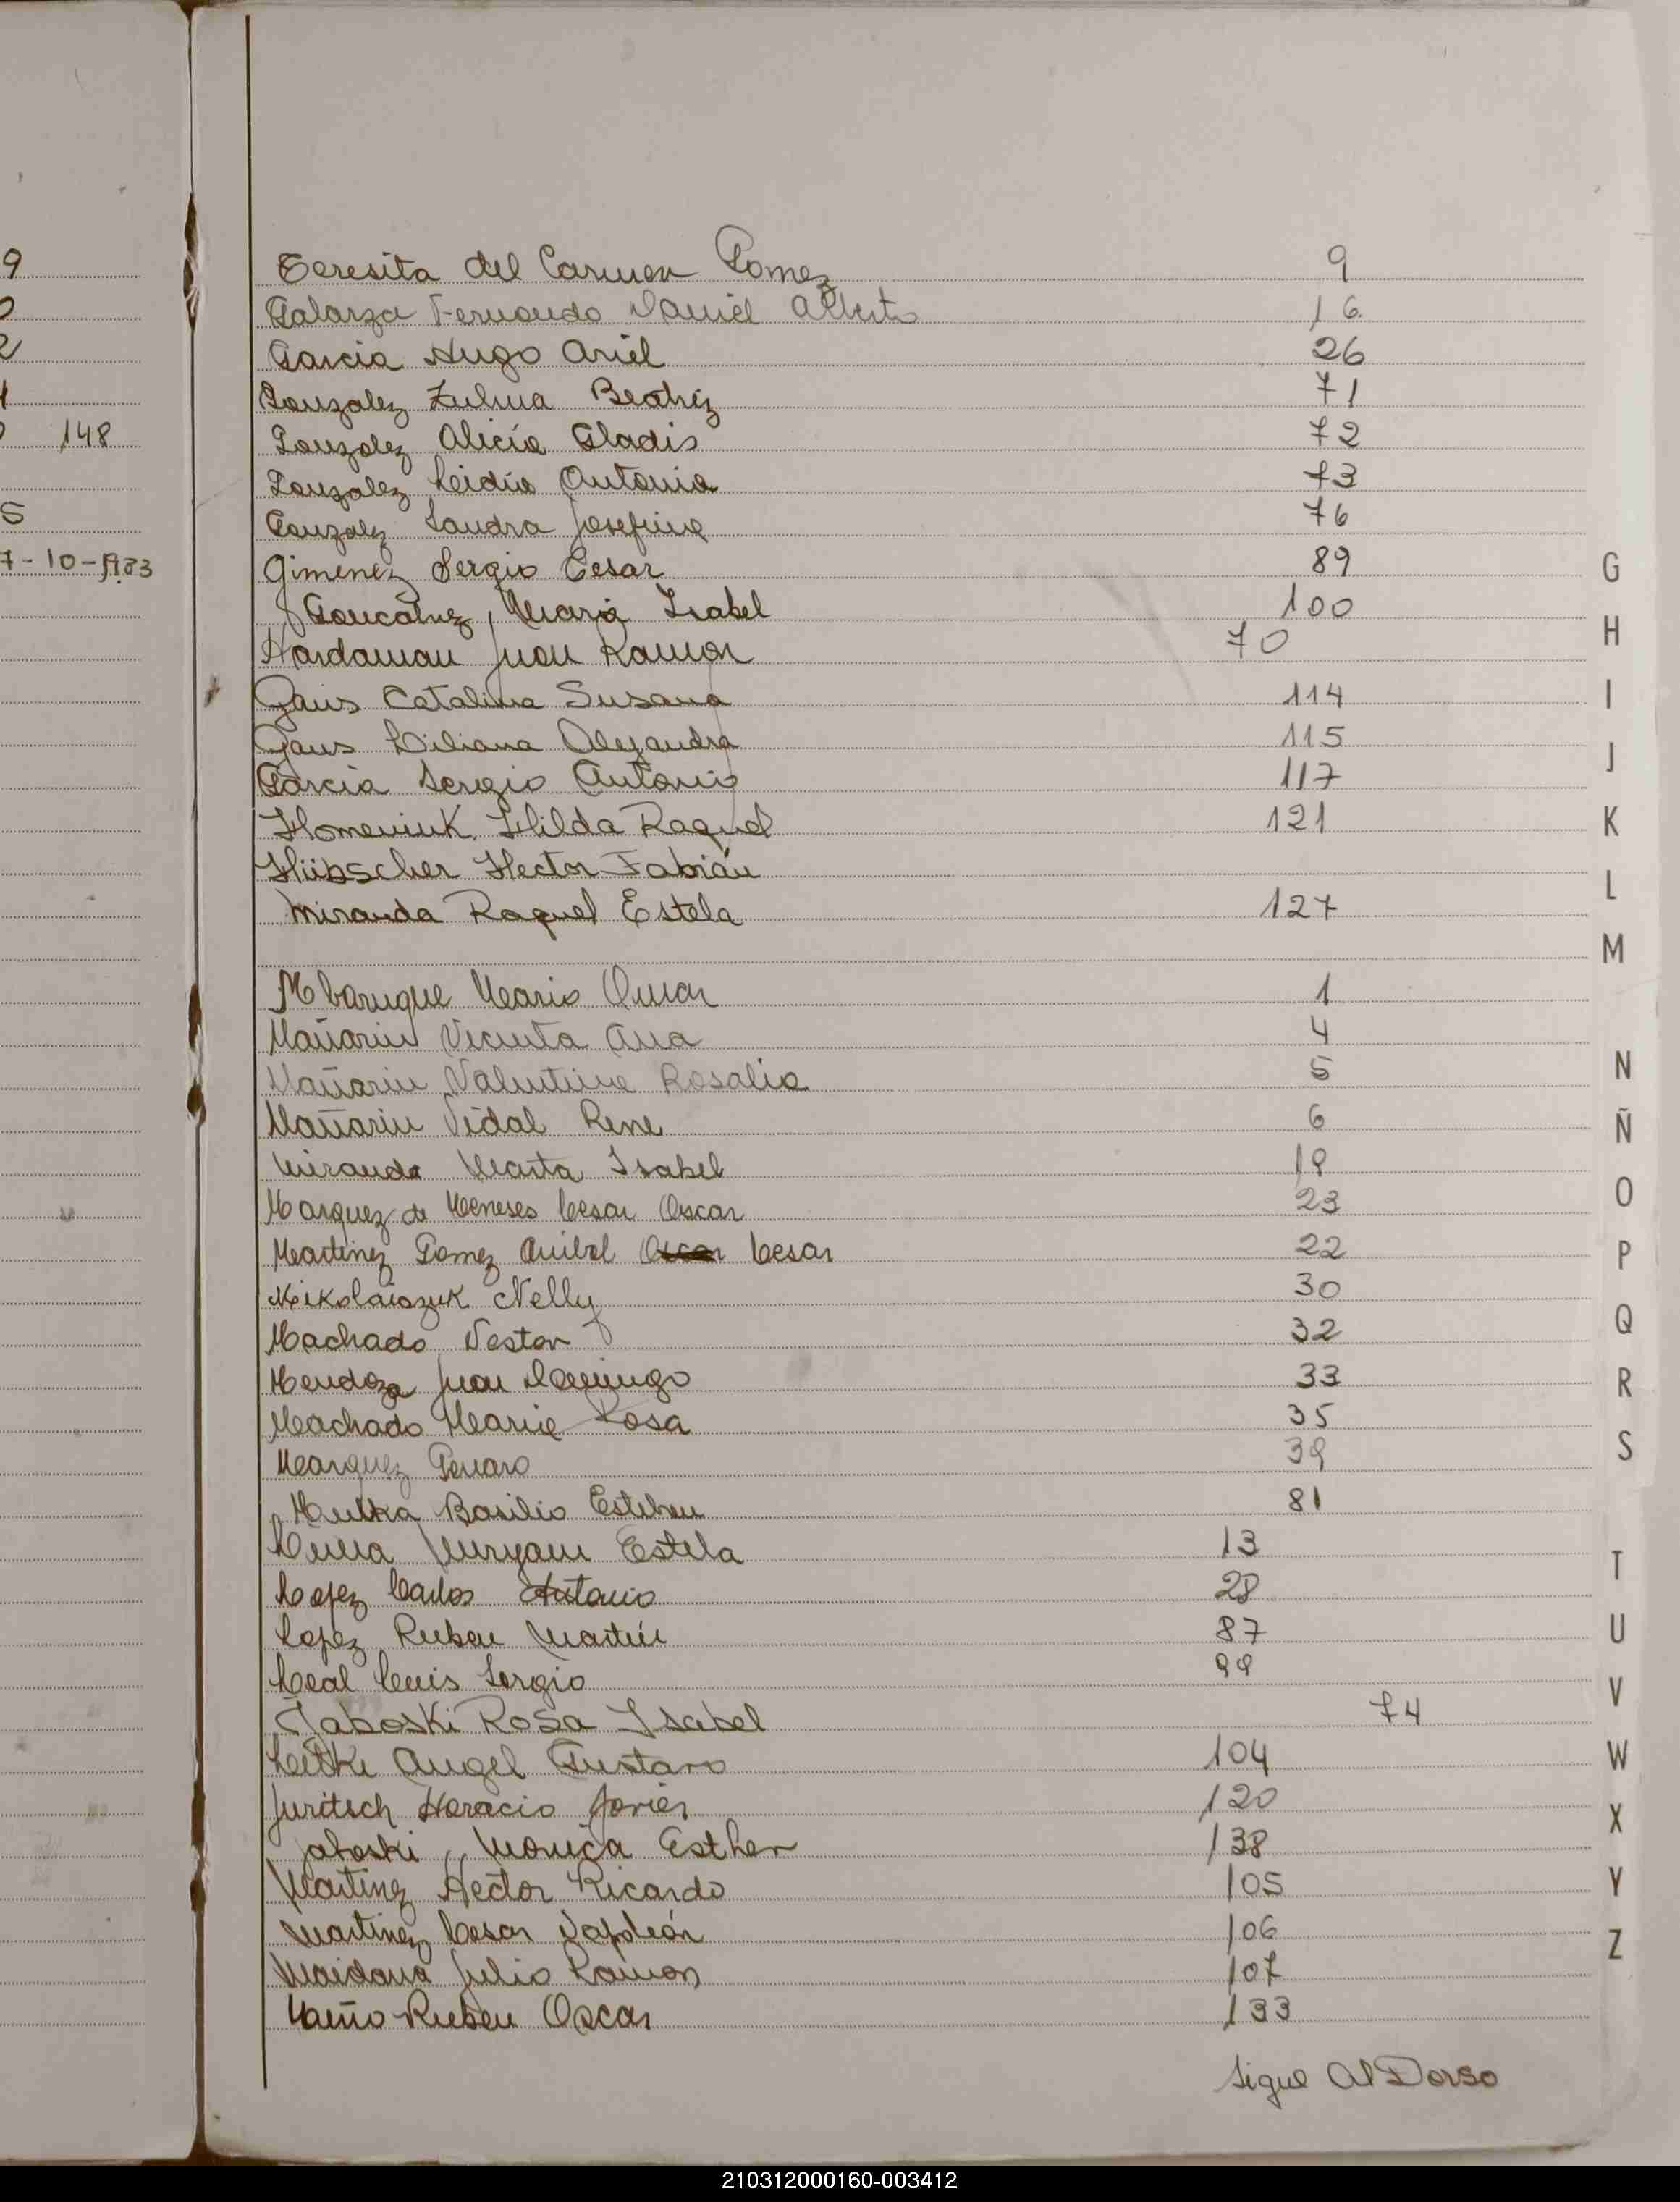 9
148
5
7-10-1983
Teresita del Carmen Gomez 9
Galarza Fernando Daniel Alberto 16
Garcia Hugo Ariel 26
Gonzalez Zulma Beatriz 71
Gonzalez Alicia Gladis 72
Gonzalez Lidia Antonia 73
Gonzalez Sandra Josefina 76
Gimenez Sergio Cesar 89
Goncalvez, Maria Isabel 100
Hardaman Juan Ramon 70
Gaus Catalina Susana 114
Gaus Liliana Alejandra 115
Garcia Sergio Antonio 117
Homeniuk Hilda Raquel 121
Hübscher Hector Fabián
Miranda Raquel Estela 127
Mbarugue Mario Omar 1
Mañariu Vicenta Ana 4
Mañariu Valentina Rosalia 5
Mañariu Vidal Rene 6
Miranda Marta Isabel 19
Marquez de Meneses Cesar Oscar 23
Martinez Gomez Anibal Oscar Cesar 22
Mikolaiczuk Nelly 30
Machado Nestor 32
Mendoza Juan Domingo 33
Machado Maria Rosa 35
Marquez Genaro 39
Multka Basilio Esteban 81
Luna Miryam Estela 13
Lopez Carlos Antonio 28
Lopez Ruben Martin 87
Leal Luis Sergio 99
Jaboski Rosa Isabel 74
Leitke Angel Gustavo 104
Juritsch Horacio Javier 120
Jaboski, Monica Esther 138
Martinez Hector Ricardo 105
Martinez Cesar Napoleón 106
Maidana Julio Ramon 107
Ruben Oscar 133
Sigue Al Dorso
G
H
I
J
K
L
M
N
Ñ
O
P
Q
R
S
T
U
V
W
X
Y
Z
210312000160-003412